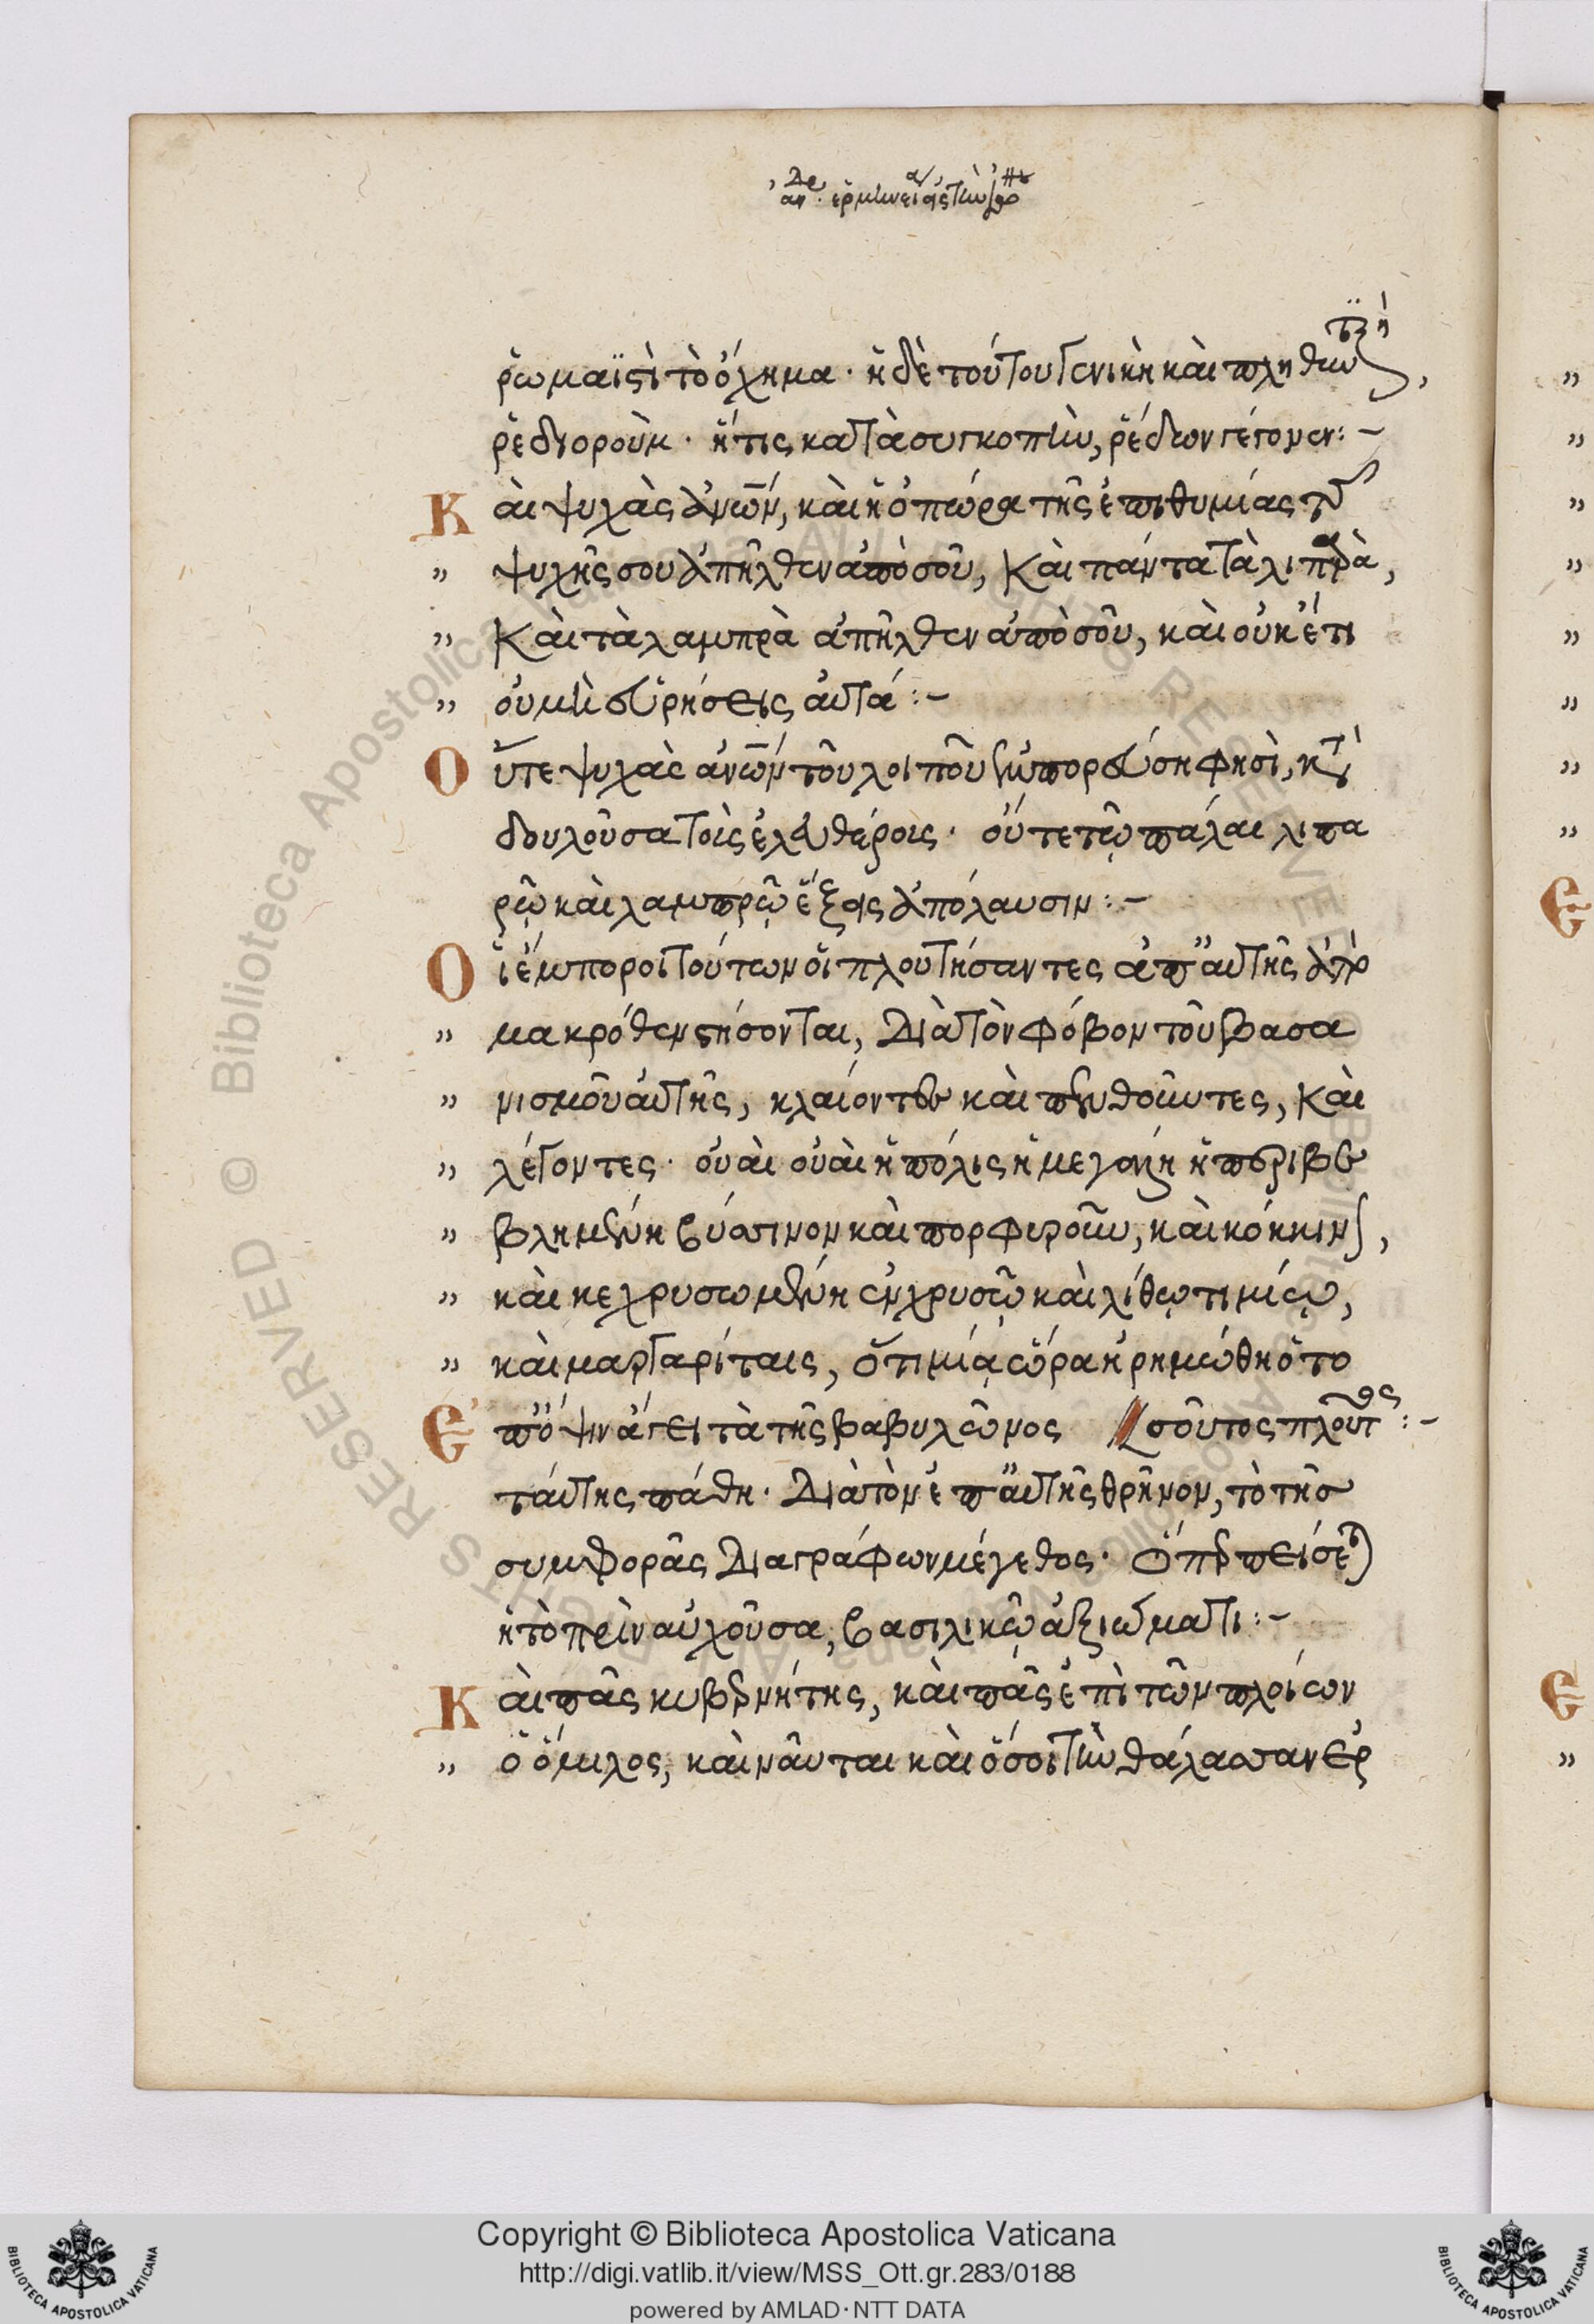 ῥωμαϊστὶ τὸ ὄχημα· ἡ δὲ τούτου γενικὴ καὶ πληθυντικὴ,
ῥεδιορούμ· ἥτις κατὰ συγκοπὴν, ῥέδων γέγονεν:–
Καὶ ψυχὰς ἀνων, καὶ ἡ ὀπώρα τῆς ἐπιθυμίας τῆς
" ψυχῆς σου ἀπῆλθεν ἀπὸ σοῦ, Καὶ πάντα τὰ λιπαρὰ,
" Καὶ τὰ λαμπρὰ ἀπῆλθεν ἀπὸ σοῦ, καὶ οὐκέτι
" οὐ μὴ εὑρήσεις αὐτά:–
Οὔτε ψυχὰς ἀνων τοῦ λοιποῦ ἐμπορεύση φησὶ, κατα
δουλοῦσα τοὺς ἐλευθέροις· οὔτε τῶ πάλαι λιπα
ρῷ καὶ λαμπρῷ ἕξεις ἀπόλαυσιν:–
Οἱ ἔμποροι τούτων οἱ πλουτήσαντες ἀπ' αὐτῆς ἀπὸ
" μακρόθεν στήσονται, Διὰ τὸν φόβον τοῦ βασα
" νισμοῦ αὐτῆς, κλαίοντες καὶ πενθοῦντες, Καὶ
" λέγοντες· οὐαὶ οὐαὶ ἡ πόλις ἡ μεγάλη ἡ περιβε
" βλημένη βύσσινον καὶ πορφυροῦν, καὶ κόκκινον,
" καὶ κεχρυσωμένη ἐν χρυσῷ καὶ λίθῳ τιμίῳ,
" καὶ μαργαρίταις, ὅτι μιᾷ ὥρᾳ ἠρημώθη ὁ το
Ἐπ' ὄψιν ἄγει τὰ τῆς βαβυλῶνος σοῦτος πλοῦτος:–
ταύτης πάθη· Διὰ τὸν ἐπ' αὐτῆς θρῆνον, τὸ τῆς
συμφορᾶς Διαγράφων μέγεθος· ὅπερ πείσεται
ἡ τὸ πρὶν αὐχοῦσα, βασιλικῷ ἀξιώματι:–
Καὶ πᾶς κυβερνήτης, καὶ πᾶς ἐπὶ τῶν πλοίων
" ὁ ὅμιλος, καὶ ναῦται καὶ ὅσοι τὴν θάλασσαν ἐρ
Copyright © Biblioteca Apostolica Vaticana
http://digi.vatlib.it/view/MSS_Ott.gr.283/0188
powered by AMLAD·NTT DATA
BIBLIOTECA APOSTOLICA VATICANA
BIBLIOTECA APOSTOLICA VATICANA